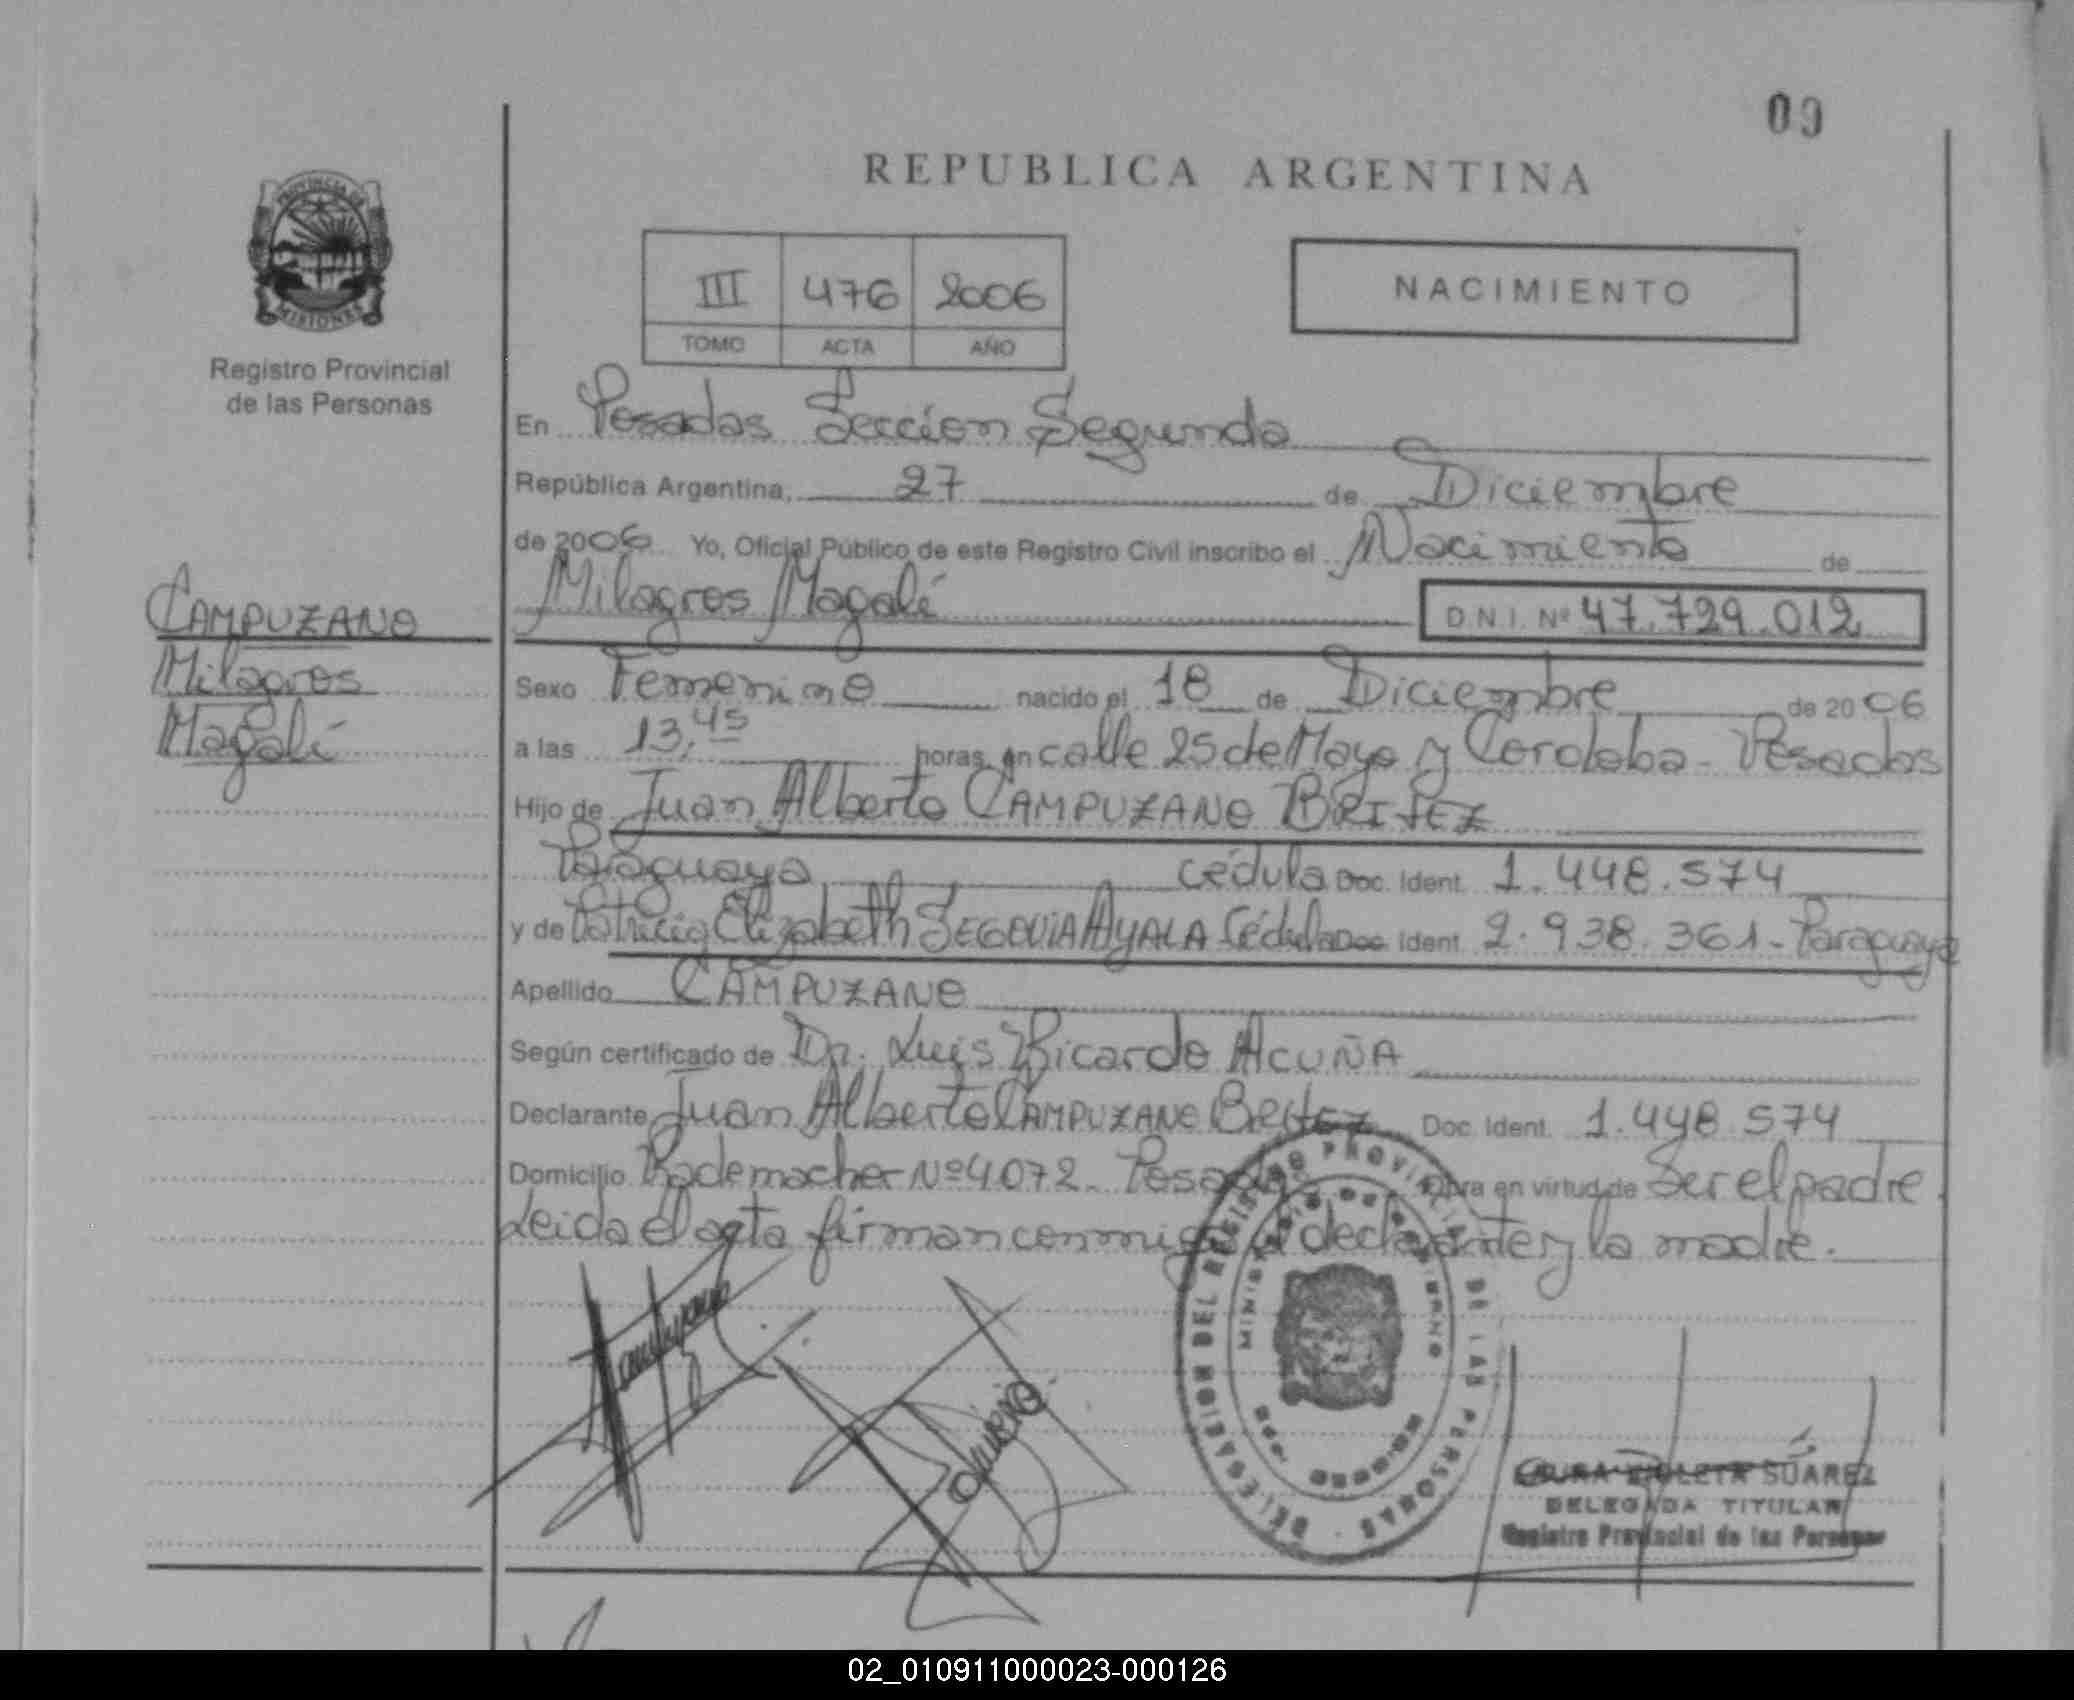 09
REPUBLICA ARGENTINA
PROVINCIA DE
MISIONES
Registro Provincial
de las Personas
III 476 2006
TOMO ACTA AÑO
NACIMIENTO
En Posadas Sección Segunda
República Argentina, 27 de Diciembre
de 2006 Yo, Oficial Público de este Registro Civil inscribo el Nacimiento de
Milagros Magalí D.N.I. Nº 47.729.012
CAMPUZANO
Milagros
Magalí
Sexo Femenino nacido el 18 de Diciembre de 2006
a las 13,45 horas, en calle 25 de Mayo y Cordoba - Posadas
Hijo de Juan Alberto CAMPUZANO BRITEZ
Paraguaya cédula Doc. Ident. 1.448.574
y de Patricia Elizabeth SEGOVIA AYALA Cédula Doc. Ident. 2.938.361 - Paraguaya
Apellido CAMPUZANO
Según certificado de Dr. Luis Ricardo ACUÑA
Declarante Juan Alberto CAMPUZANO BRITEZ Doc. Ident. 1.448.574
Domicilio Rademacher Nº 4072 - Posadas Obra en virtud de Ser el padre.
Leida el acta firman conmigo el declarante y la madre.
DELEGACION DEL REGISTRO PROVINCIAL DE LAS PERSONAS
MINISTERIO DE GOBIERNO
SUAREZ
DELEGADA TITULAR
Registro Provincial de las Personas
02_010911000023-000126